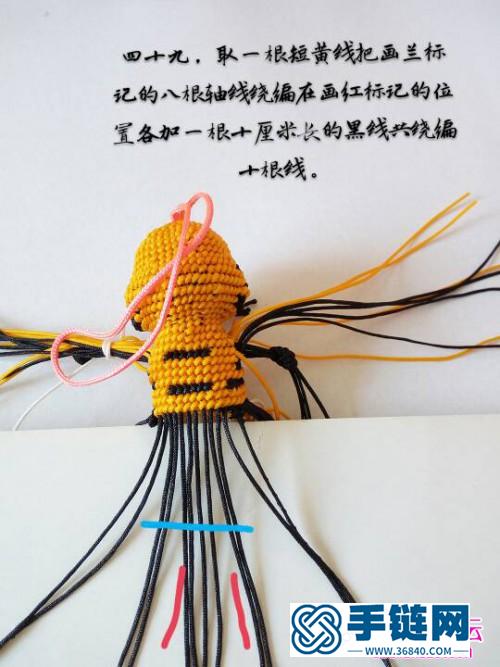 四十九，取一根短黄线把画兰标
记的八根轴线绕编在画红标记的位
置各加一根十厘米长的黑线共绕编
十根线。
手链网
www.36840.com
云